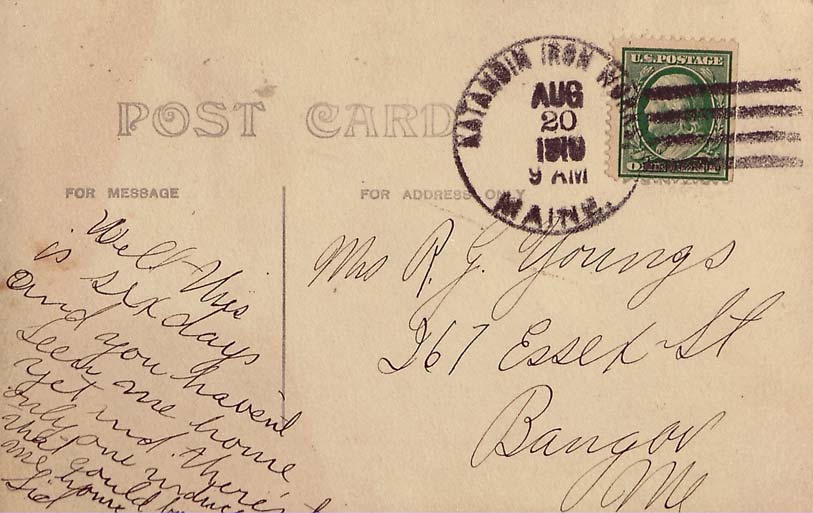 POST CARD
KATAHDIN IRON WORKS
AUG
20
1910
9 AM
MAINE.
U.S. POSTAGE
FOR MESSAGE
FOR ADDRESS ONLY
Well this
is six days
and you haven't
seen me home
yet and there's
only one
that could
me home
Sid
Mrs R. G. Youngs
267 Essex St
Bangor
Me